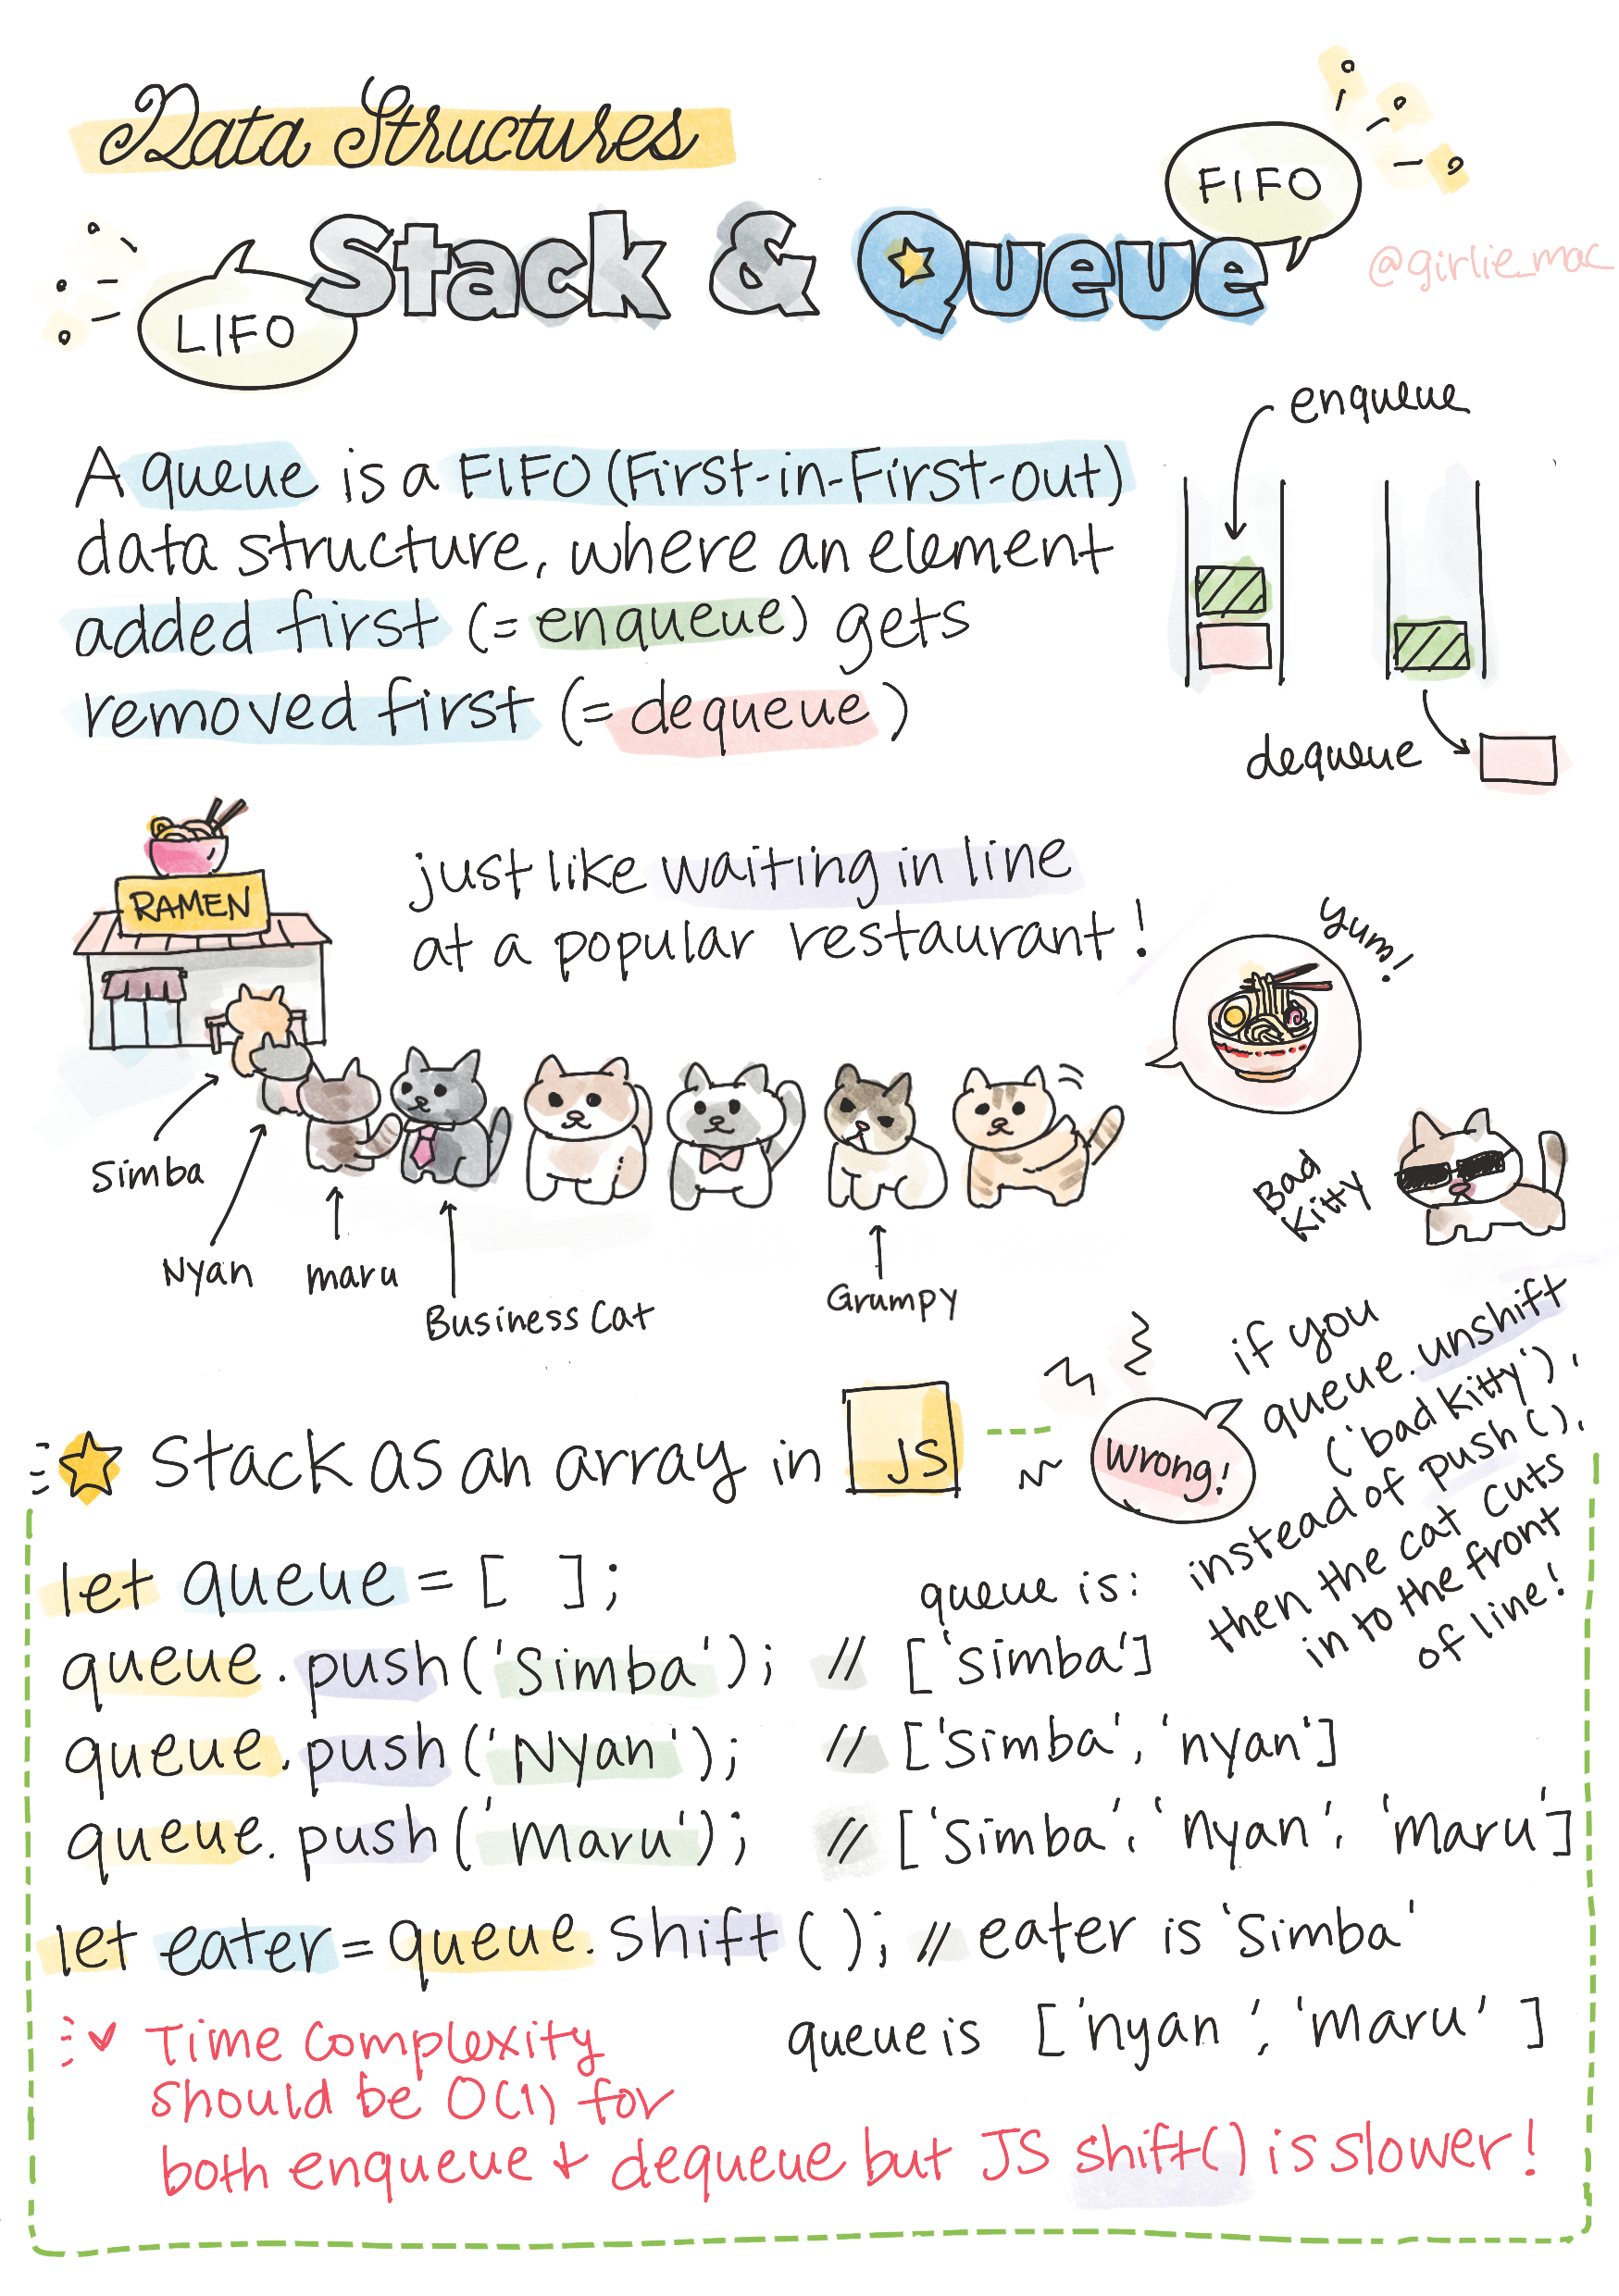 Data Structures
FIFO
Stack & Queue
@girlie_mac
LIFO
enqueue
A queue is a FIFO (First-in-First-out)
data structure, where an element
added first (= enqueue) gets
removed first (= dequeue)
dequeue
RAMEN
just like waiting in line
at a popular restaurant!
yum!
Simba
Nyan
maru
Business Cat
Grumpy
Bad
Kitty
if you
queue.unshift
('bad kitty'),
instead of push(),
then the cat cuts
in to the front
of line!
Wrong!
Stack as an array in JS
let queue = [ ];
queue is:
queue.push('Simba'); // ['simba']
queue.push('Nyan'); // ['simba', 'nyan']
queue.push('Maru'); // ['simba', 'nyan', 'maru']
let eater = queue.shift(); // eater is 'simba'
queue is ['nyan', 'maru']
Time complexity
should be O(1) for
both enqueue + dequeue but JS shift() is slower!